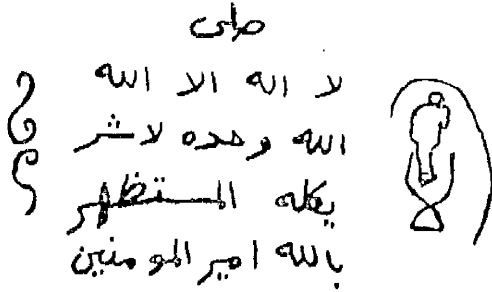 صلى
لا اله الا الله
الله وحده لا شر
يكله المستظهر
بالله امير المومنين